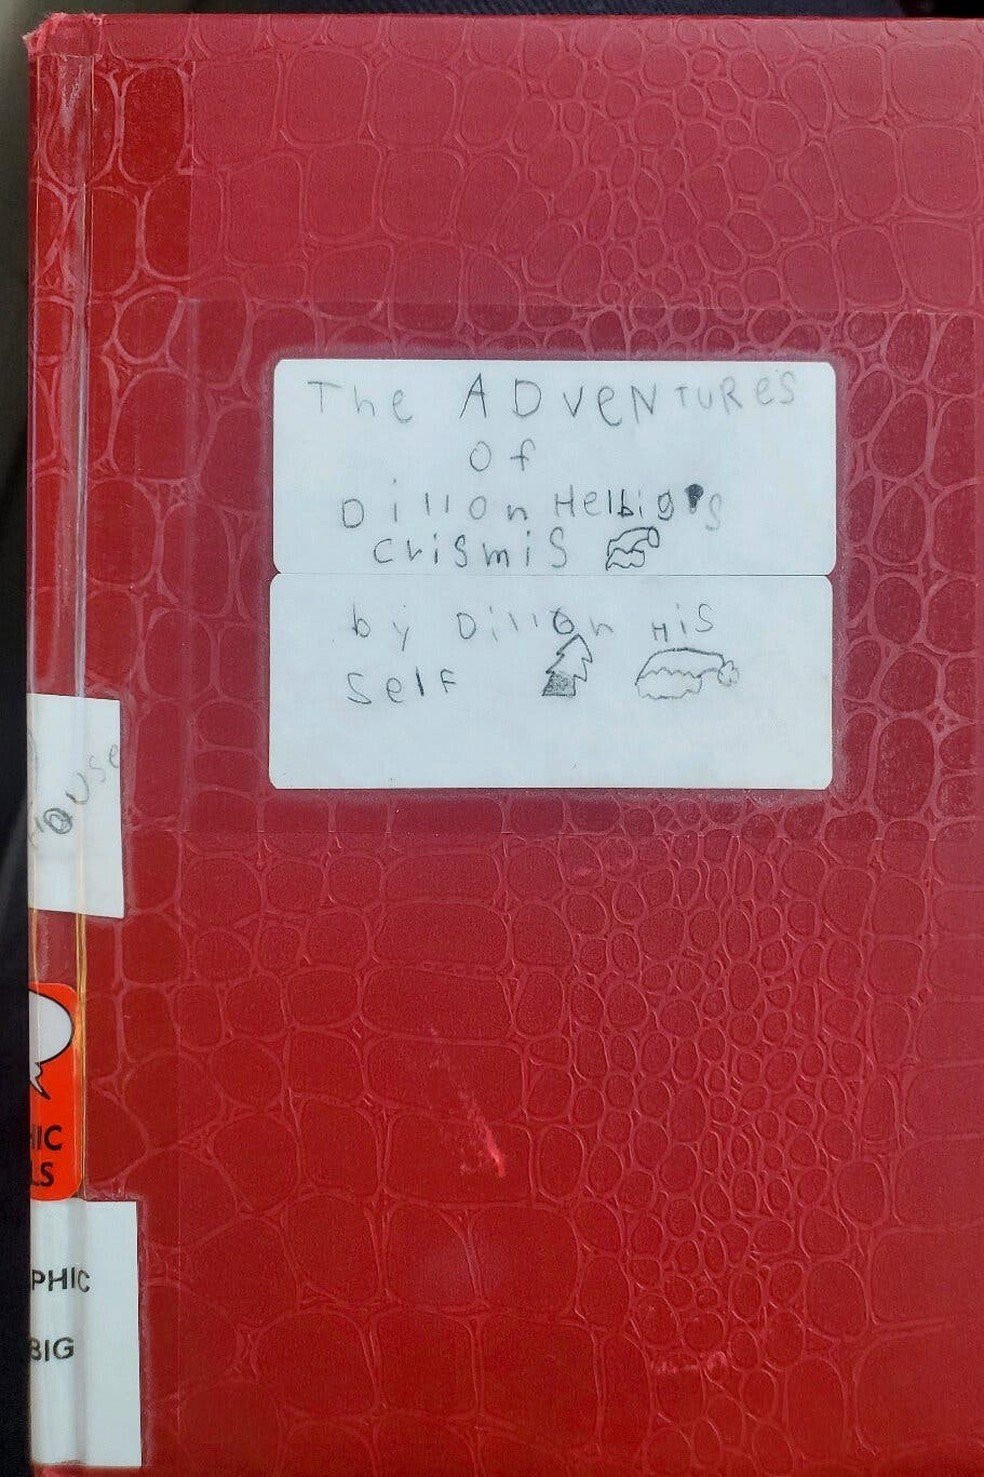 The ADVeNTUReS
Of
Dillon Helbig's
crismis
by Dillon His
Self
PHIC
BIG